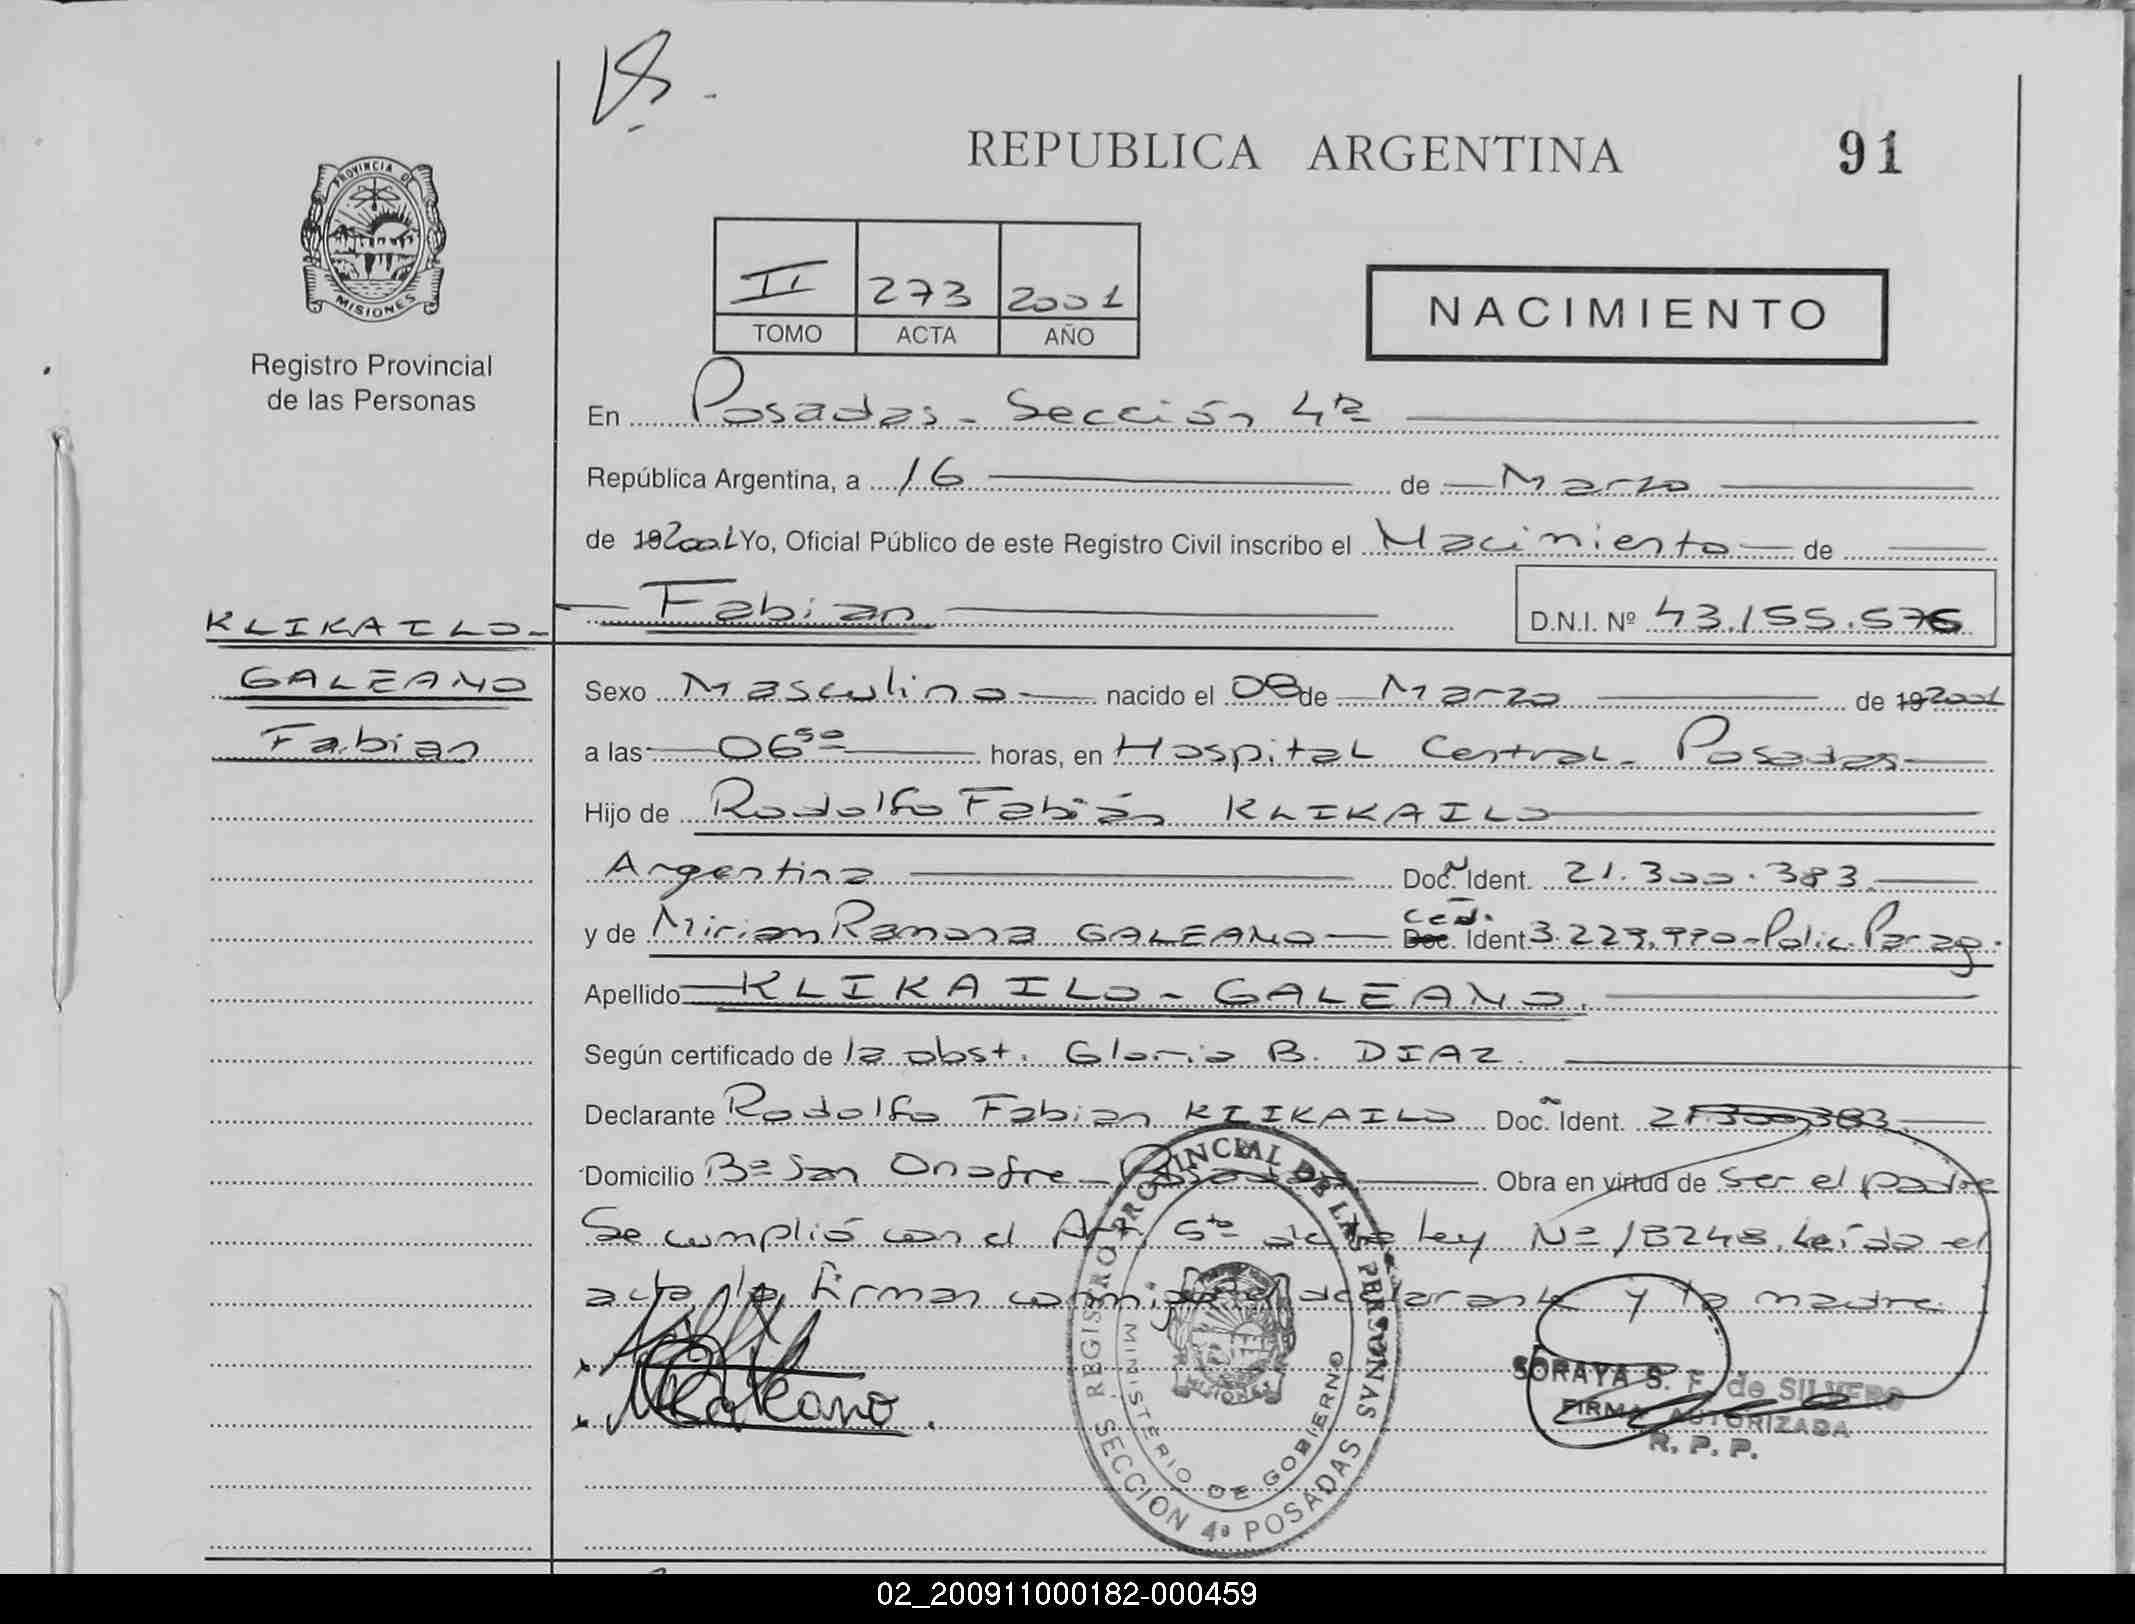 REPUBLICA ARGENTINA 91
PROVINCIA DE MISIONES
Registro Provincial
de las Personas
II 273 2001
TOMO ACTA AÑO
NACIMIENTO
En Posadas - Sección 4ta
República Argentina, a 16 de Marzo
de 19 2001 Yo, Oficial Público de este Registro Civil inscribo el Nacimiento de
Fabian D.N.I. Nº 43.155.576
KLIKAILO-
GALEANO
Fabian
Sexo Masculino nacido el 08 de Marzo de 19 2001
a las 06 50 horas, en Hospital Central - Posadas
Hijo de Rodolfo Fabián KLIKAILO
Argentina Doc. Ident. 21.300.383
y de Mirian Ramona GALEANO Ced. Doc. Ident 3.223.970 - Polic. Parag.
Apellido KLIKAILO - GALEANO.
Según certificado de la obst. Gloria B. DIAZ
Declarante Rodolfo Fabian KLIKAILO Doc. Ident. 21.300.383
Domicilio Bº San Onofre - Posadas Obra en virtud de ser el padre
Se cumplió con el Art. 5to de la ley Nº 18248. Leído el
acta la firman conmigo el declarante y la madre
MGaleano
REGISTRO PROVINCIAL DE LAS PERSONAS
MINISTERIO DE GOBIERNO
MISIONES
SECCION 4ª POSADAS
SORAYA S. F. de SILVERO
FIRMA AUTORIZADA
R. P. P.
02_200911000182-000459